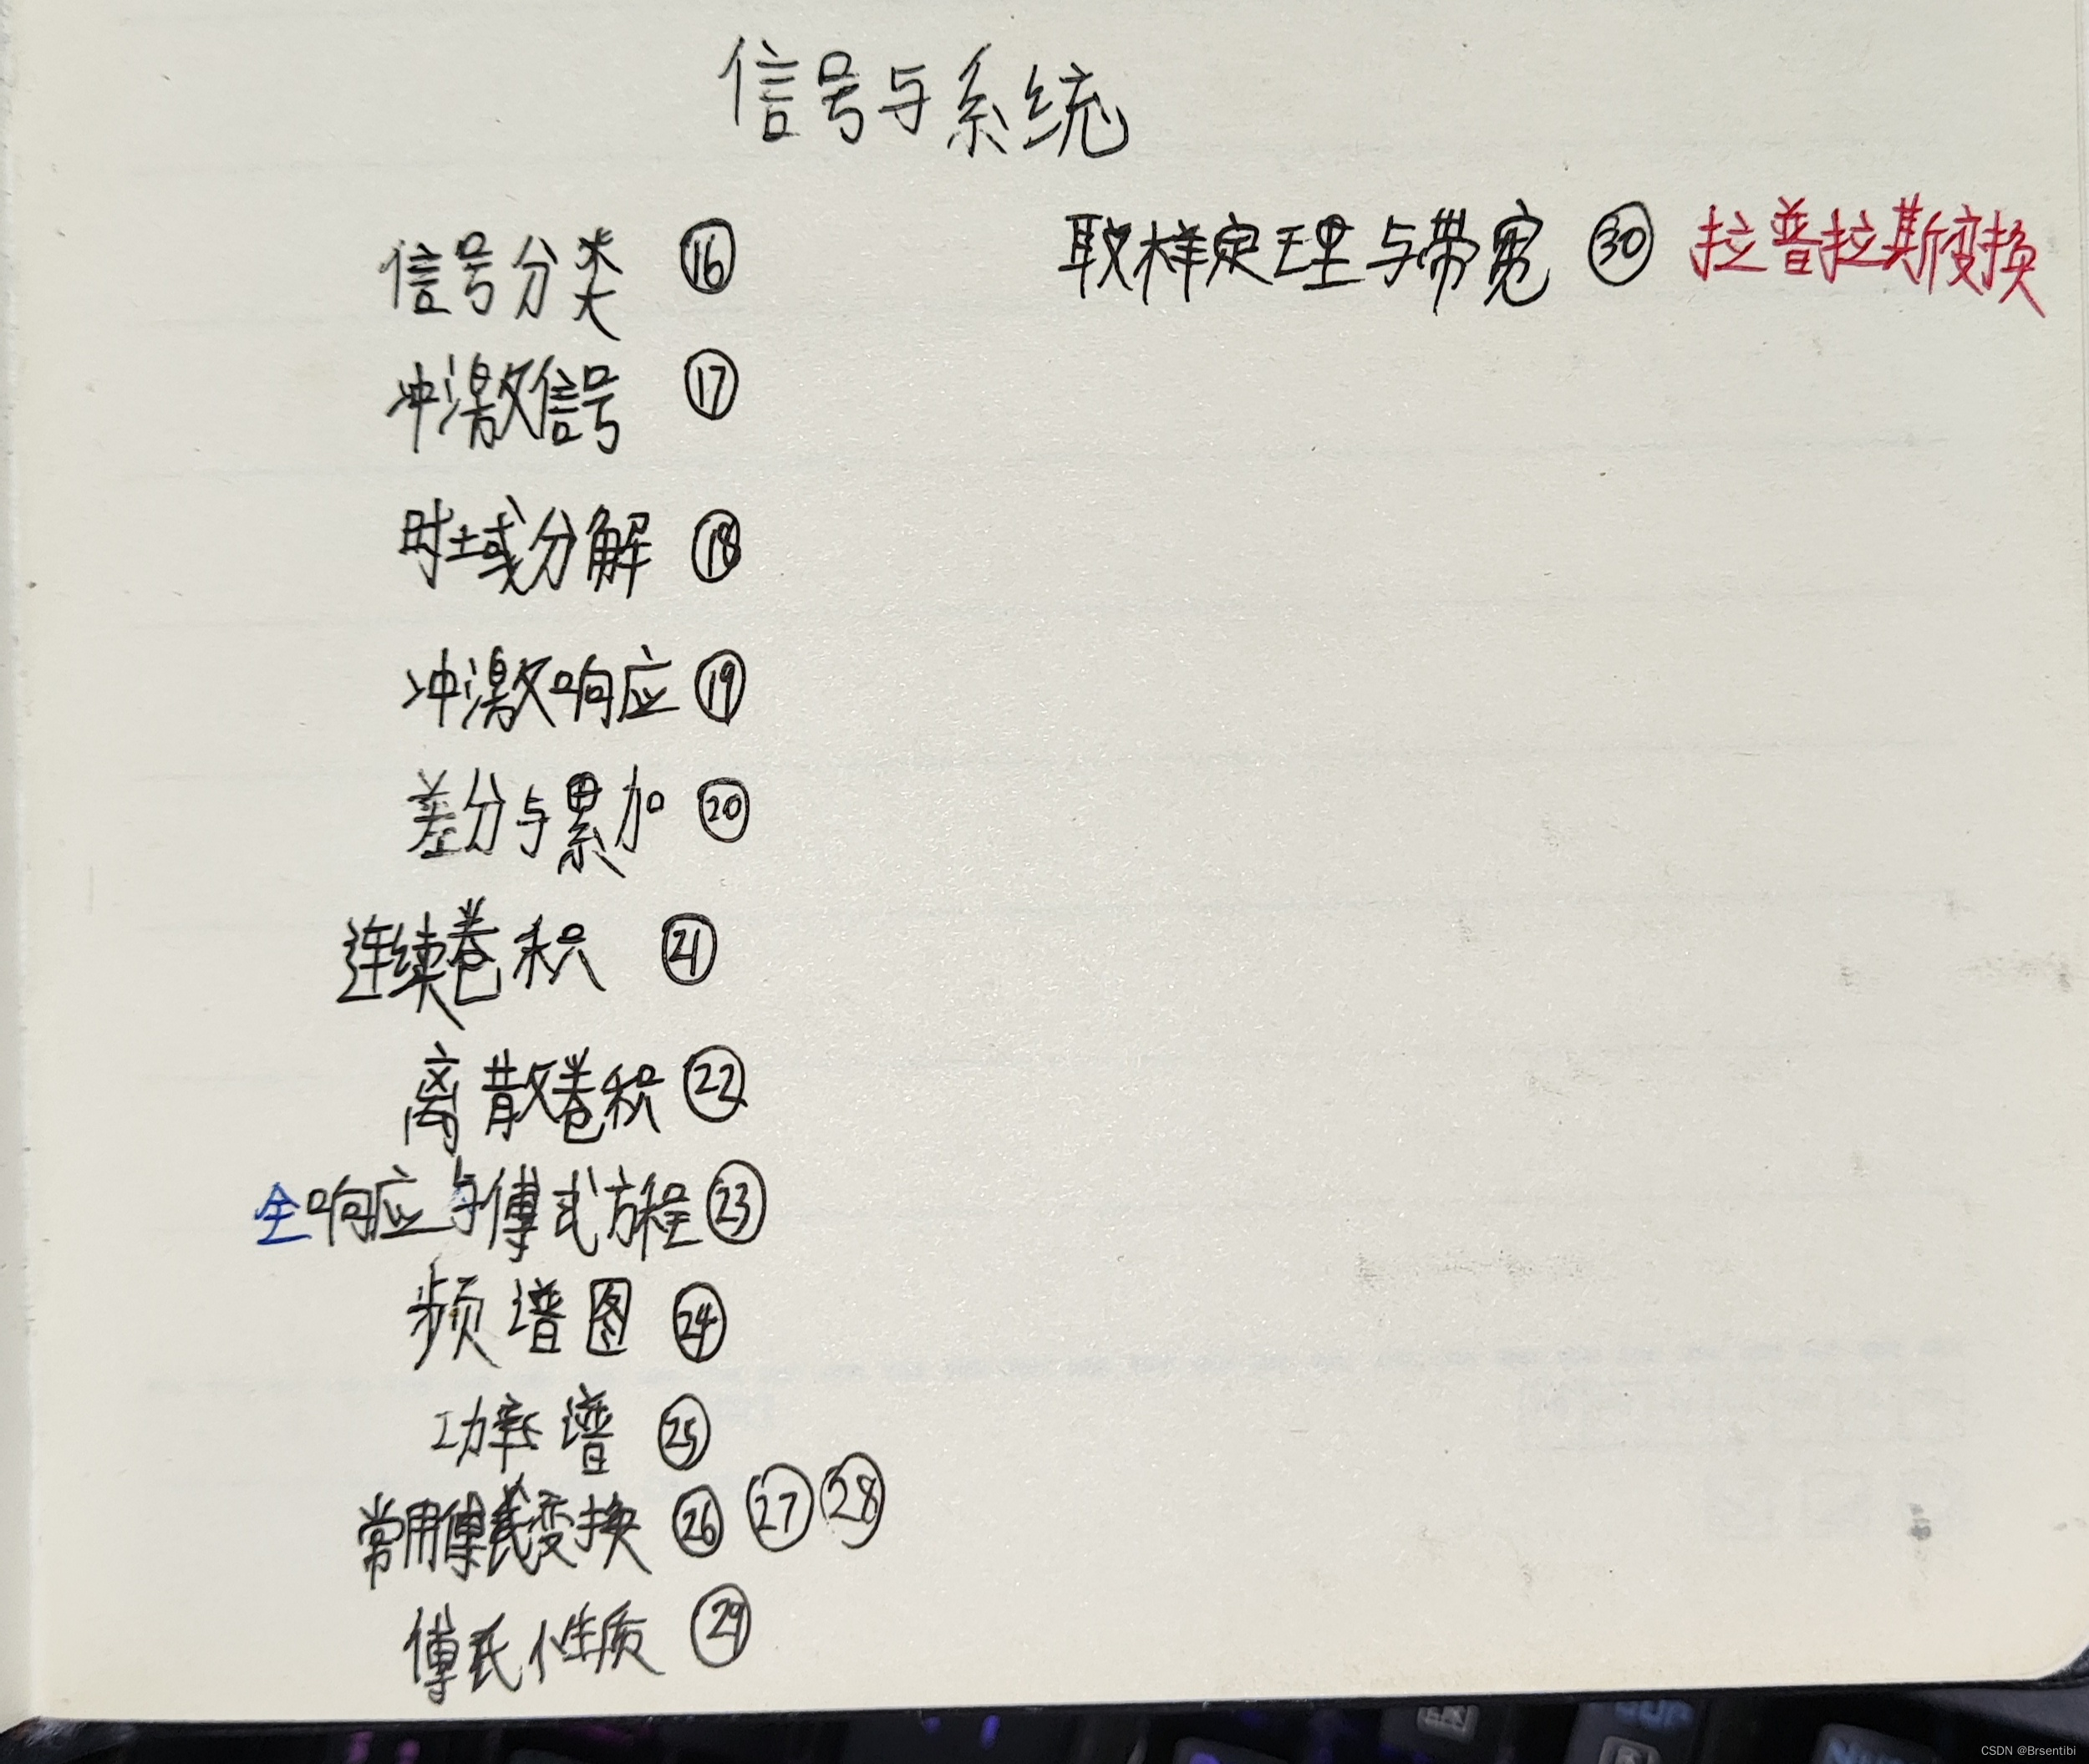 信号与系统
信号分类 ⑯
冲激信号 ⑰
时域分解 ⑱
冲激响应 ⑲
差分与累加 ⑳
连续卷积 ㉑
离散卷积 ㉒
全响应与傅式方程 ㉓
频谱图 ㉔
功率谱 ㉕
常用傅氏变换 ㉖ ㉗ ㉘
傅氏性质 ㉙
取样定理与带宽 ㉚ 拉普拉斯变换
CSDN @Brsentibi